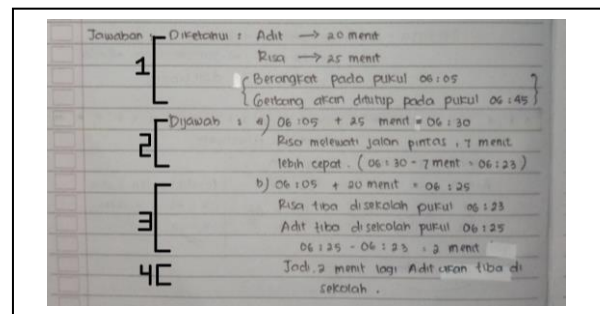 Jawaban : Diketahui : Adit → 20 menit
1 Risa → 25 menit
Berangkat pada pukul 06:05
Gerbang akan ditutup pada pukul 06:45
2 Dijawab : a) 06:05 + 25 menit = 06:30
Risa melewati jalan pintas, 7 menit
lebih cepat. (06:30 - 7 menit = 06:23)
3 b) 06:05 + 20 menit = 06:25
Risa tiba disekolah pukul 06:23
Adit tiba disekolah pukul 06:25
06:25 - 06:23 = 2 menit
4 Jadi 2 menit lagi Adit akan tiba di
sekolah.